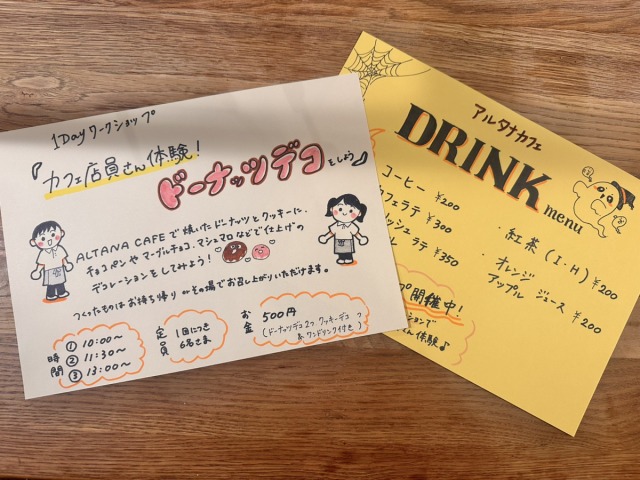 1Dayワークショップ
カフェ店員さん体験!
ドーナッツデコをしよう♪
ALTANA CAFEで焼いたドーナッツとクッキーに、
チョコペンやマーブルチョコ、マシュマロなどで仕上げの
デコレーションをしてみよう!
つくったものはお持ち帰りかその場でお召し上がりいただけます。
時間
① 10:00〜
② 11:30〜
③ 13:00〜
定員
1回につき
6名さま
お金
500円
(ドーナッツデコ2つ、クッキーデコ1つ
&ワンドリンク付き)
アルタナカフェ
DRINK
menu
コーヒー ¥200
カフェラテ ¥300
ッシュ ラテ ¥350
・紅茶(I・H) ¥200
・オレンジ
アップル ジュース ¥200
開催中!
ションで
さん体験♪